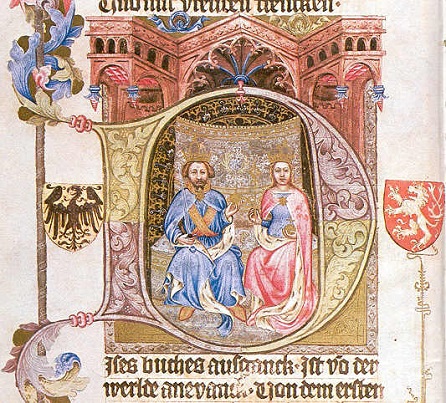 DIses buches ausganck. Ist vō der
werlde anevanck. Von dem ersten